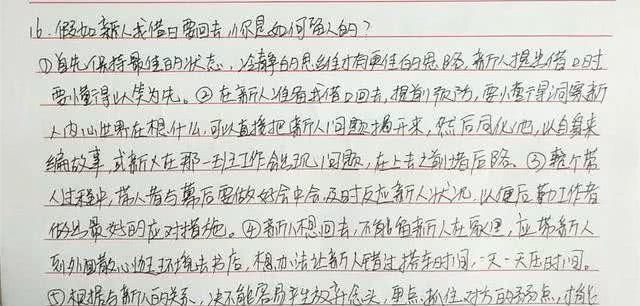 16. 假如新人找借口要回去,你是如何留人的?
①首先保持最佳的状态,冷静的思维才有更佳的思路,新人提出借口时
要懂得以笑为先。②在新人准备找借口回去,提前预防,要懂得洞察新
人内心世界在想什么,可以直接把新人问题揭开来,然后同化他,以自身来
编故事,或新人在那一班工作会出现问题,在上去之前堵后路。③整个带
人过程中,带人者与幕后要做好会中会,及时反应新人状况,以便后勤工作者
做出最好的应对措施。④新人想回去,不能留新人在家里,应带新人
到外面散心如环境去书店,想办法让新人错过搭车时间,一天一天压时间。
⑤根据与新人的关系,决不能容易产生放弃念头,重点抓住对方的弱点,才能